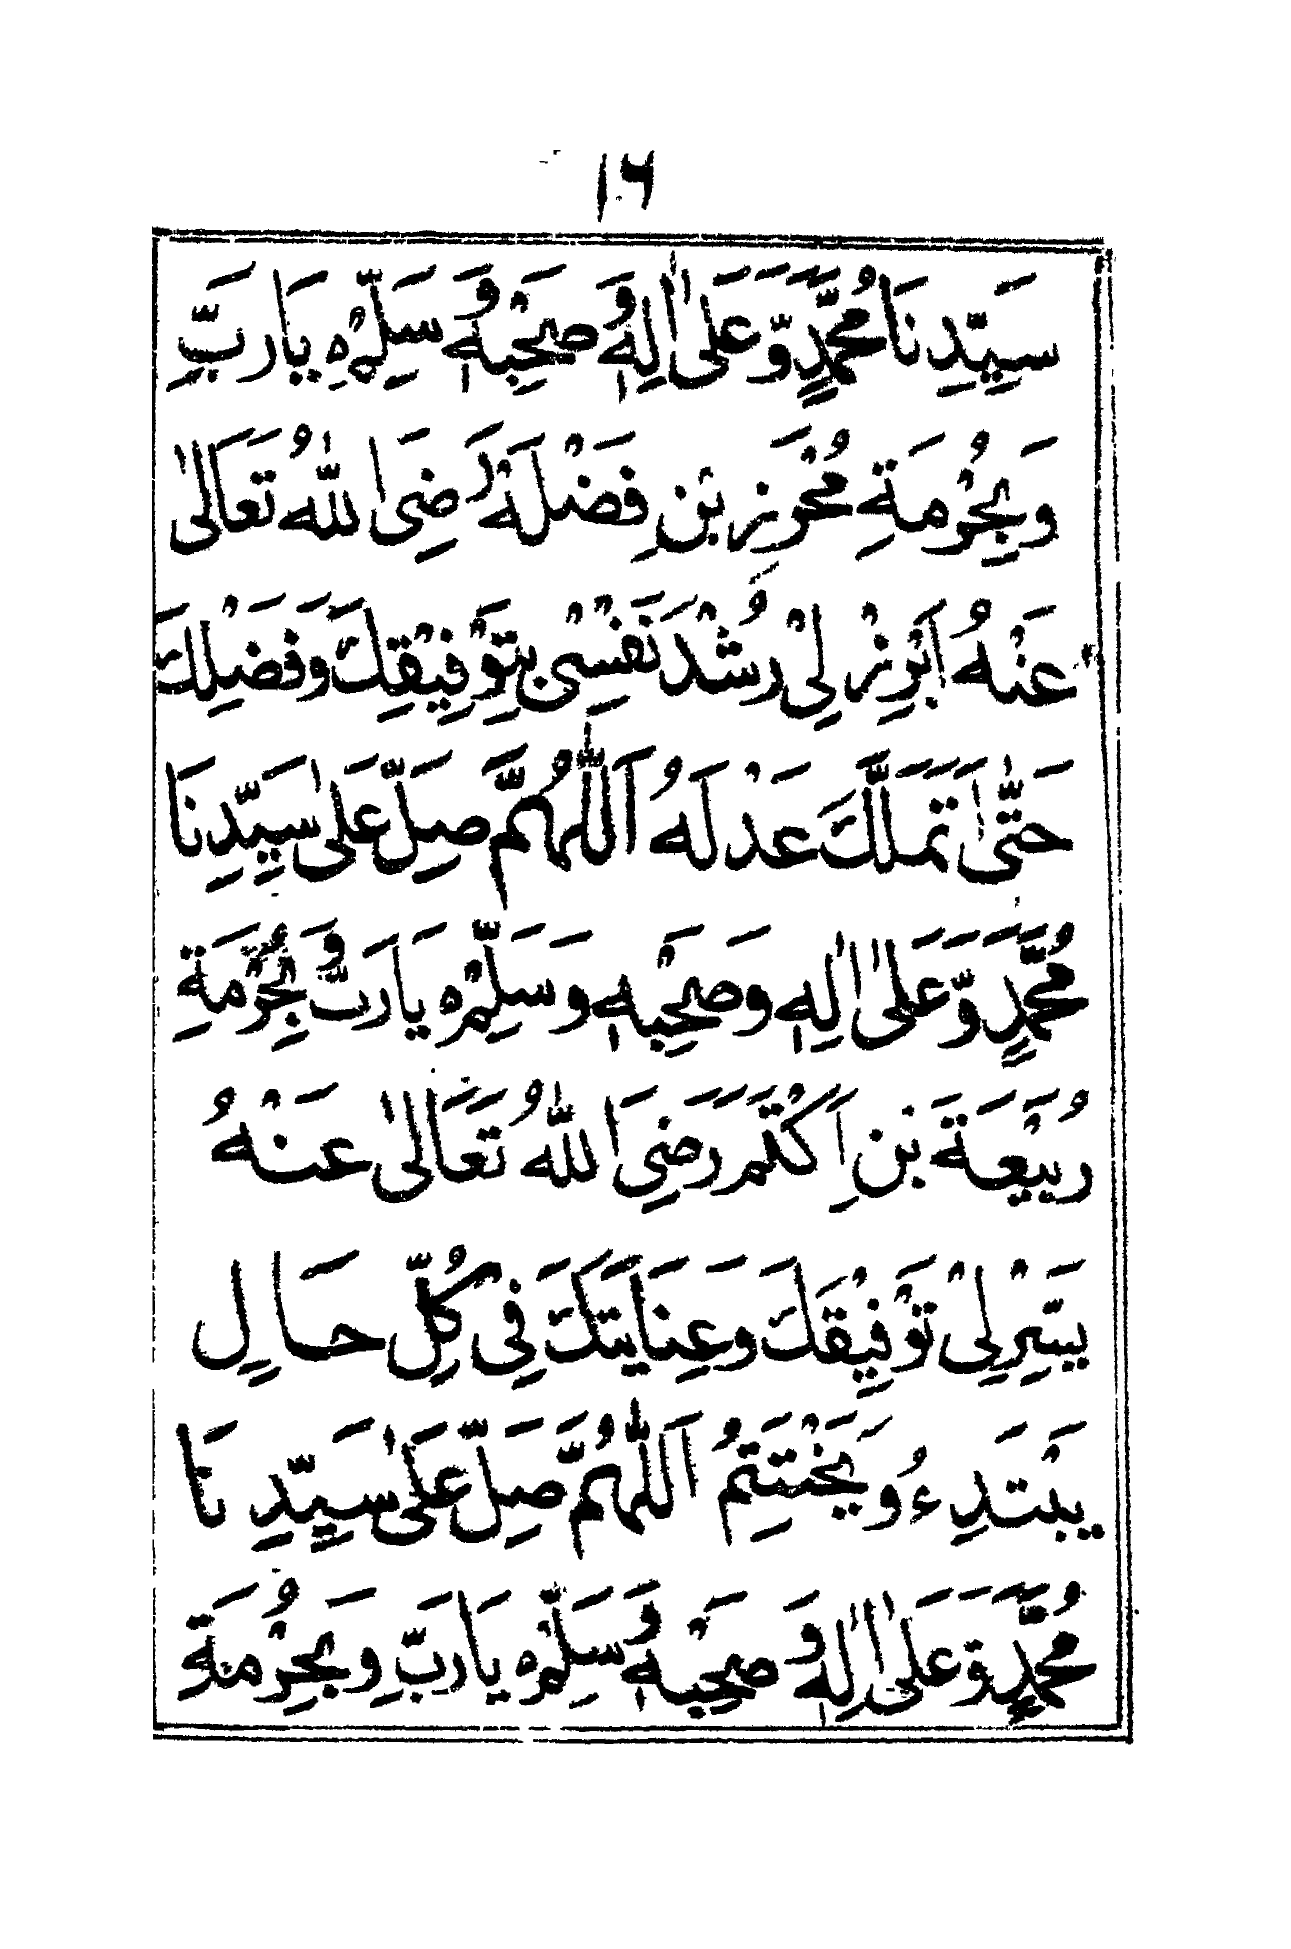 ١٤
سَيِّدِنَا مُحَمَّدٍ وَّعَلٰى اٰلِهٖ وَصَحْبِهٖ وَسَلِّمْ ہ يَا رَبِّ
وَبِحُرْمَةِ مُحْرِزِ بْنِ فِضْلَةَ رَضِىَ اللّٰهُ تَعَالٰى
عَنْهُ اَبْرِزْ لِىْ رُشْدَ نَفْسِىْ بِتَوْفِيْقِكَ وَفَضْلِكَ
حَتّٰى تَمَلَّكَ عَدْلَهُ اَللّٰهُمَّ صَلِّ عَلٰى سَيِّدِنَا
مُحَمَّدٍ وَّعَلٰى اٰلِهٖ وَصَحْبِهٖ وَسَلِّمْ ہ يَا رَبِّ وَبِحُرْمَةِ
رَبِيْعَةَ بْنِ اَكْتَمَ رَضِىَ اللّٰهُ تَعَالٰى عَنْهُ
يَسِّرْ لِىْ تَوْفِيْقَكَ وَعِنَايَتَكَ فِىْ كُلِّ حَالٍ
يَبْتَدِءُ وَيَخْتَتِمُ اَللّٰهُمَّ صَلِّ عَلٰى سَيِّدِنَا
مُحَمَّدٍ وَّعَلٰى اٰلِهٖ وَصَحْبِهٖ وَسَلِّمْ ہ يَا رَبِّ وَبِحُرْمَةِ